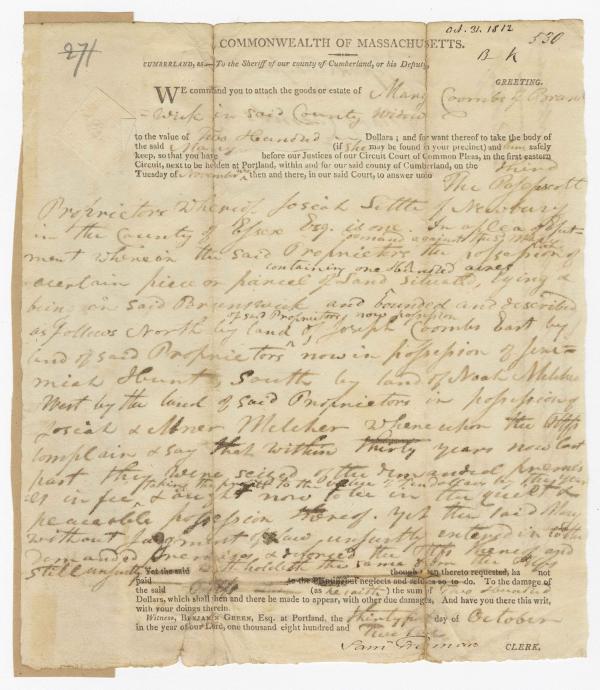 Oct. 31. 1812
271
530
COMMONWEALTH OF MASSACHUSETTS.
B K
CUMBERLAND, ss.—To the Sheriff of our county of Cumberland, or his Deputy,
GREETING.
WE command you to attach the goods or estate of Mary Coombs of Bruns-
wick in said County Widow
to the value of Two Hundred Dollars; and for want thereof to take the body of
the said Mary (if She may be found in your precinct) and him safely
keep, so that you have before our Justices of our Circuit Court of Common Pleas, in the first eastern
Circuit, next to be holden at Portland, within and for our said county of Cumberland, on the third
Tuesday of November next then and there, in our said Court, to answer unto
The Pejepscott
Proprietors whereof Josiah Little of Newbury
in the County of Essex Esq. is one. In a plea of Eject-
demand against the sd Mary
ment wherein the said Proprietors the possession of
containing one Hundred acres
a certain piece or parcel of Land situated, lying &
being in said Brunswick and bounded and described
of said Proprietors now in possession
as follows North by land of Joseph Coombs East by
land of said Proprietors now in possession of Jere-
miah Hunt, South by land of Noah Melcher
West by the land of said Proprietors in possession of
Josiah & Abner Melcher Whereupon the Pltfs
complain & say that within thirty years now last
past they were seized of the demanded premis-
taking the profits to the value of dollars by the year
es in fee & ought now to be in the quiet &
peaceable possession thereof. yet the said Mary
without Judgment of Law unjustly entered into the
demanded premises & the Pltfs hence and
still unjustly Yet the said withholdeth the same from the though often thereto requested, ha not
paid to the Plaintiff but neglects and refuses so to do. To the damage of
the said Pltfs (as he saith) the sum of Two Hundred
Dollars, which shall then and there be made to appear, with other due damages. And have you there this writ,
with your doings therein.
Witness, BENJAMIN GREEN, Esq. at Portland, the thirty first day of October
in the year of our Lord, one thousand eight hundred and Twelve
Saml Freeman CLERK.